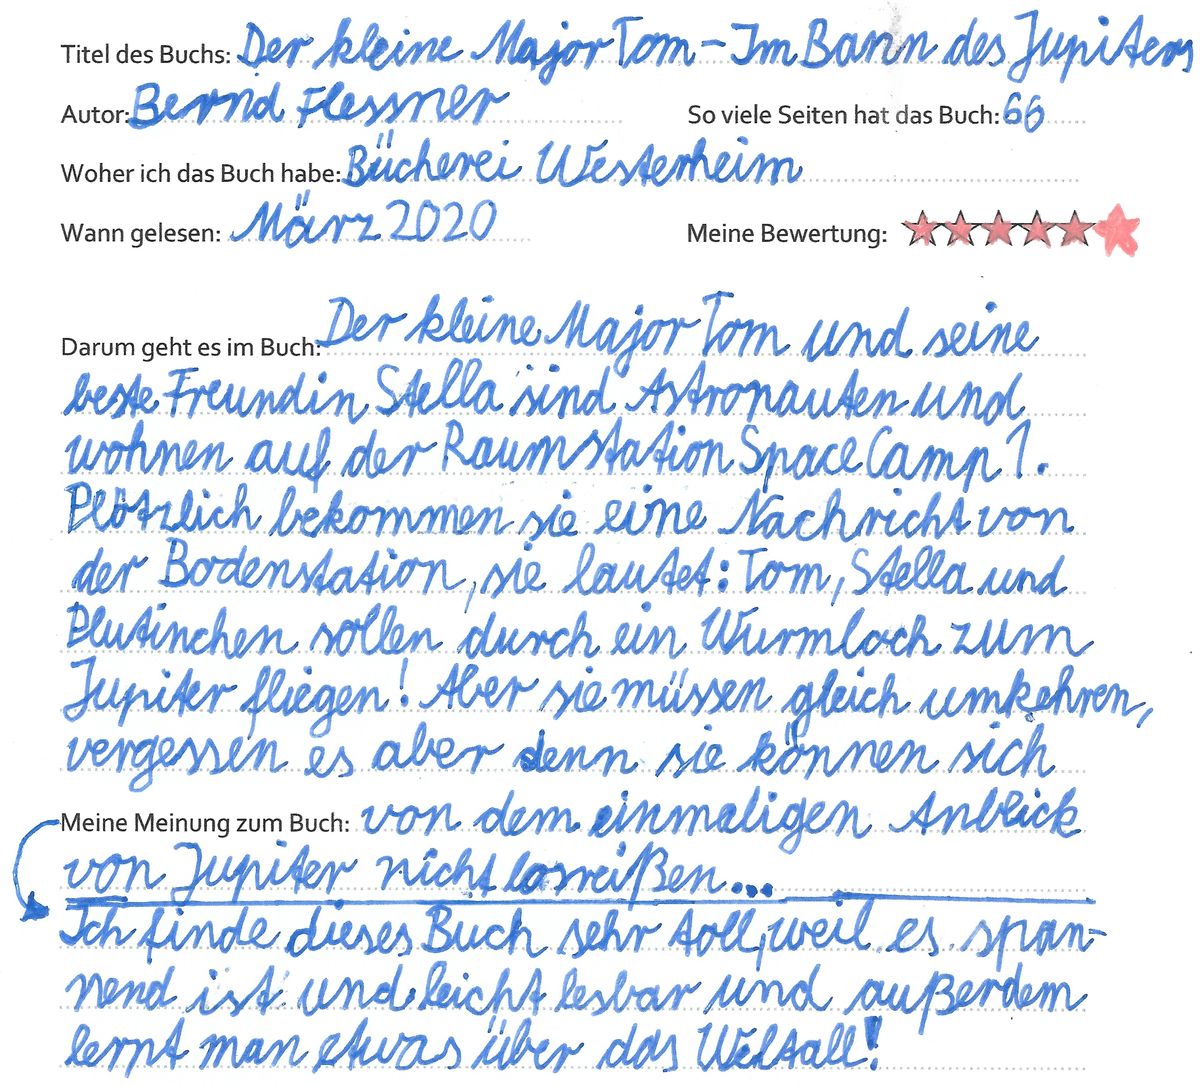 Titel des Buchs: Der kleine Major Tom - Im Bann des Jupiters
Autor: Bernd Flessner So viele Seiten hat das Buch: 66
Woher ich das Buch habe: Bücherei Westerheim
Wann gelesen: März 2020 Meine Bewertung:
Darum geht es im Buch: Der kleine Major Tom und seine
beste Freundin Stella sind Astronauten und
wohnen auf der Raumstation Space Camp 1.
Plötzlich bekommen sie eine Nachricht von
der Bodenstation, sie lautet: Tom, Stella und
Plutinchen sollen durch ein Wurmloch zum
Jupiter fliegen! Aber sie müssen gleich umkehren,
vergessen es aber denn sie können sich
Meine Meinung zum Buch: von dem einmaligen Anblick
von Jupiter nicht losreißen...
Ich finde dieses Buch sehr toll, weil es span-
nend ist und leicht lesbar und außerdem
lernt man etwas über das Weltall!